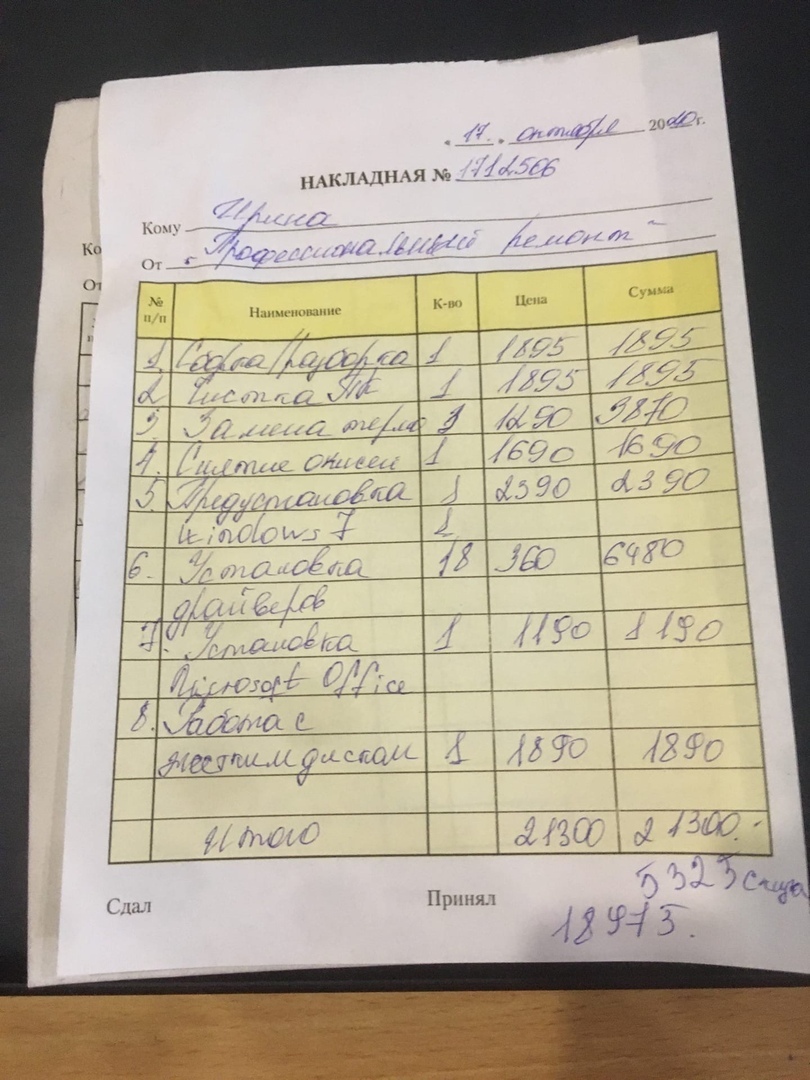 " 17. " октября 2020 г.
НАКЛАДНАЯ № 1712566
Кому Ирина
От "Профессиональный ремонт"
№ п/п Наименование К-во Цена Сумма
1. Сборка/разборка 1 1895 1895
2. Чистка ПК 1 1895 1895
3. Замена термо 3 1290 3870
4. Снятие окисей 1 1690 1690
5. Предустановка 1 2390 2390
Windows 7 1
6. Установка 18 360 6480
драйверов
7. Установка 1 1190 1190
Microsoft Office
8. Работа с
жестким диском 1 1890 1890
Итого 21300 21300.-
5325 скидка
Сдал Принял